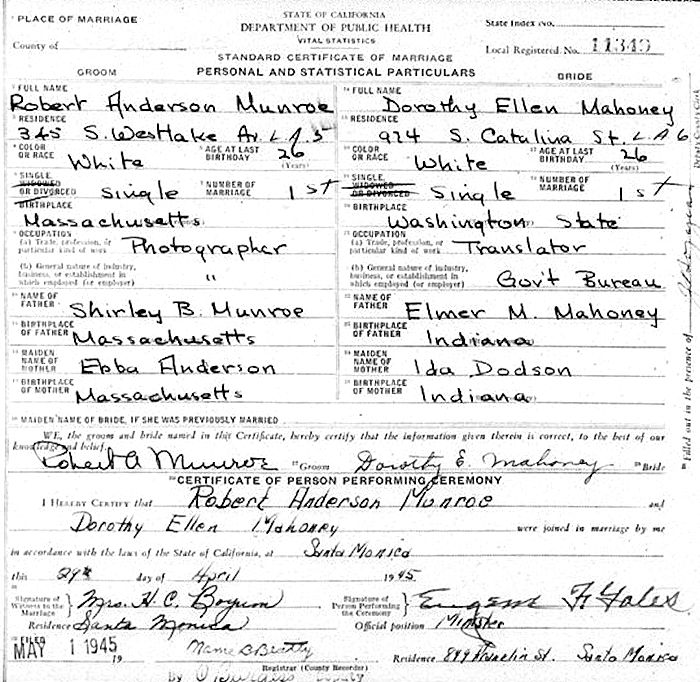 PLACE OF MARRIAGE
STATE OF CALIFORNIA
DEPARTMENT OF PUBLIC HEALTH
VITAL STATISTICS
State Index No.
County of
Local Registered No. 11340
STANDARD CERTIFICATE OF MARRIAGE
GROOM PERSONAL AND STATISTICAL PARTICULARS BRIDE
FULL NAME Robert Anderson Munroe
FULL NAME Dorothy Ellen Mahoney
RESIDENCE 345 S. Westlake Av. L.A. 5
RESIDENCE 974 S. Catalina St. L A 6
COLOR OR RACE White AGE AT LAST BIRTHDAY 26 (Years)
COLOR OR RACE White AGE AT LAST BIRTHDAY 26 (Years)
SINGLE WIDOWED OR DIVORCED Single NUMBER OF MARRIAGE 1st
SINGLE WIDOWED OR DIVORCED Single NUMBER OF MARRIAGE 1st
BIRTHPLACE Massachusetts
BIRTHPLACE Washington State
OCCUPATION
(a) Trade, profession, or particular kind of work Photographer
OCCUPATION
(a) Trade, profession, or particular kind of work Translator
(b) General nature of industry, business, or establishment in which employed (or employer) "
(b) General nature of industry, business, or establishment in which employed (or employer) Gov't Bureau
NAME OF FATHER Shirley B. Munroe
NAME OF FATHER Elmer M. Mahoney
BIRTHPLACE OF FATHER Massachusetts
BIRTHPLACE OF FATHER Indiana
MAIDEN NAME OF MOTHER Ebba Anderson
MAIDEN NAME OF MOTHER Ida Dodson
BIRTHPLACE OF MOTHER Massachusetts
BIRTHPLACE OF MOTHER Indiana
MAIDEN NAME OF BRIDE, IF SHE WAS PREVIOUSLY MARRIED
WE, the groom and bride named in this Certificate, hereby certify that the information given therein is correct, to the best of our
knowledge and belief.
Robert A Munroe Groom Dorothy E. Mahoney Bride
CERTIFICATE OF PERSON PERFORMING CEREMONY
I HEREBY CERTIFY that Robert Anderson Munroe and
Dorothy Ellen Mahoney were joined in marriage by me
in accordance with the laws of the State of California, at Santa Monica
this 29th day of April 1945
Signature of Witness to the Marriage Mrs. H. C.
Signature of Person Performing the Ceremony Eugene
Residence Santa Monica
Official position Minister
FILED MAY 1 1945 19
Mame B Beatty
Residence St. Santa Monica
Registrar (County Recorder)
By O Burgess Deputy
Filled out in the presence of